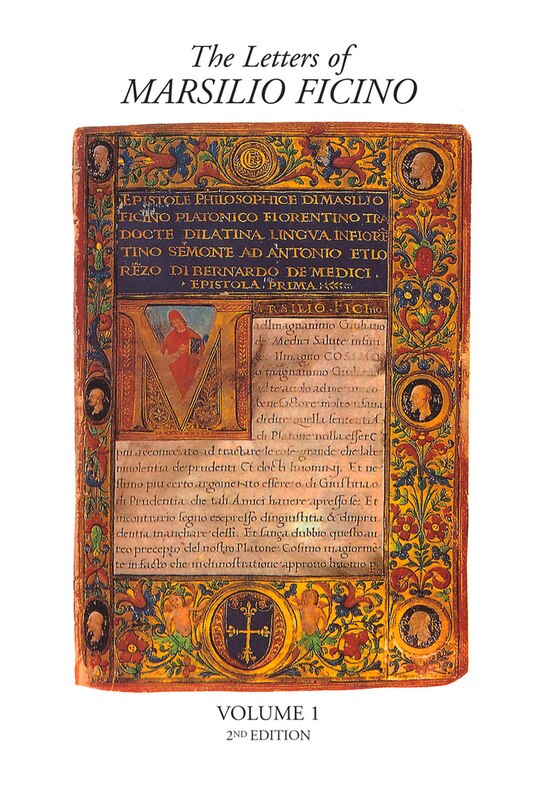 The Letters of
MARSILIO FICINO
EPISTOLE PHILOSOPHICE DI MASILIO
FICINO PLATONICO FIORENTINO TRA
DOCTE DILATINA LINGVA INFIORE
TINO SEMONE AD ANTONIO ET LO
RĒZO DI BERNARDO DE MEDICI .
EPISTOLA PRIMA
M
ARSILIO FICIno
almagnanimo Giuliano
de Medici Salute
Il magno COSIMO
o magnanimo
di Platone nulla esser
mi accomodato ad tractare le cose grande che la
niuolentia de prudenti Et docti huomini. Et ne
ssimo piu certo argomento essere o di Giustitia o
di Prudentia che tali Amici hauere apresso se: Et
incontrario segno expresso dingiustitia & dimpru
dentia manchare dessi. Et sanza dubbio questo au
reo precepto del nostro Platone Cosimo magiorme
te in facto che in dimostratione approuo huomo
VOLUME 1
2ND EDITION